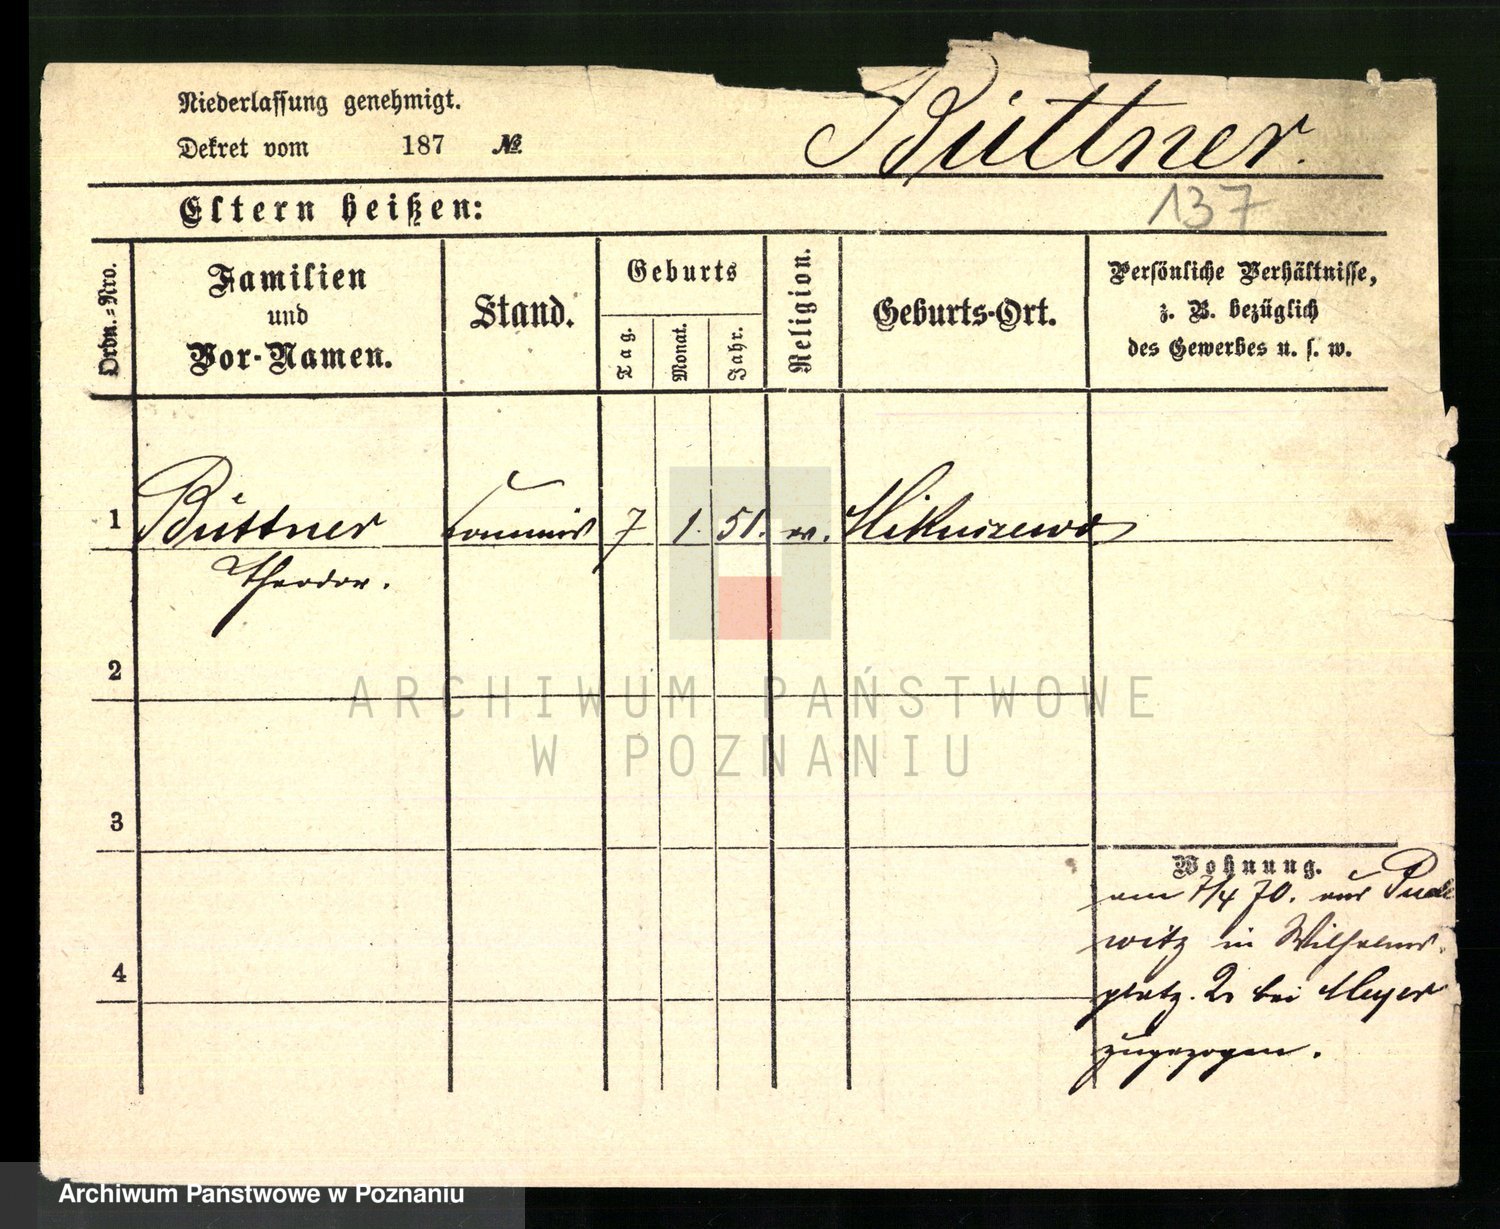 Niederlassung genehmigt.
Dekret vom 187 No.
Büttner.
137
Eltern heißen:
Ordn.-Nro.
Familien
und
Vor-Namen.
Stand.
Geburts
Tag.
Monat.
Jahr.
Religion.
Geburts-Ort.
Persönliche Verhältnisse,
z. B. bezüglich
des Gewerbes u. s. w.
1 Büttner Commis 7 1. 51.
Theodor.
2
3
4
Wohnung.
am 7/4 70. aus Pude
witz in Wilhelms-
platz. 2 bei Meyer
zugezogen.
ARCHIWUM PAŃSTWOWE
W POZNANIU
Archiwum Państwowe w Poznaniu